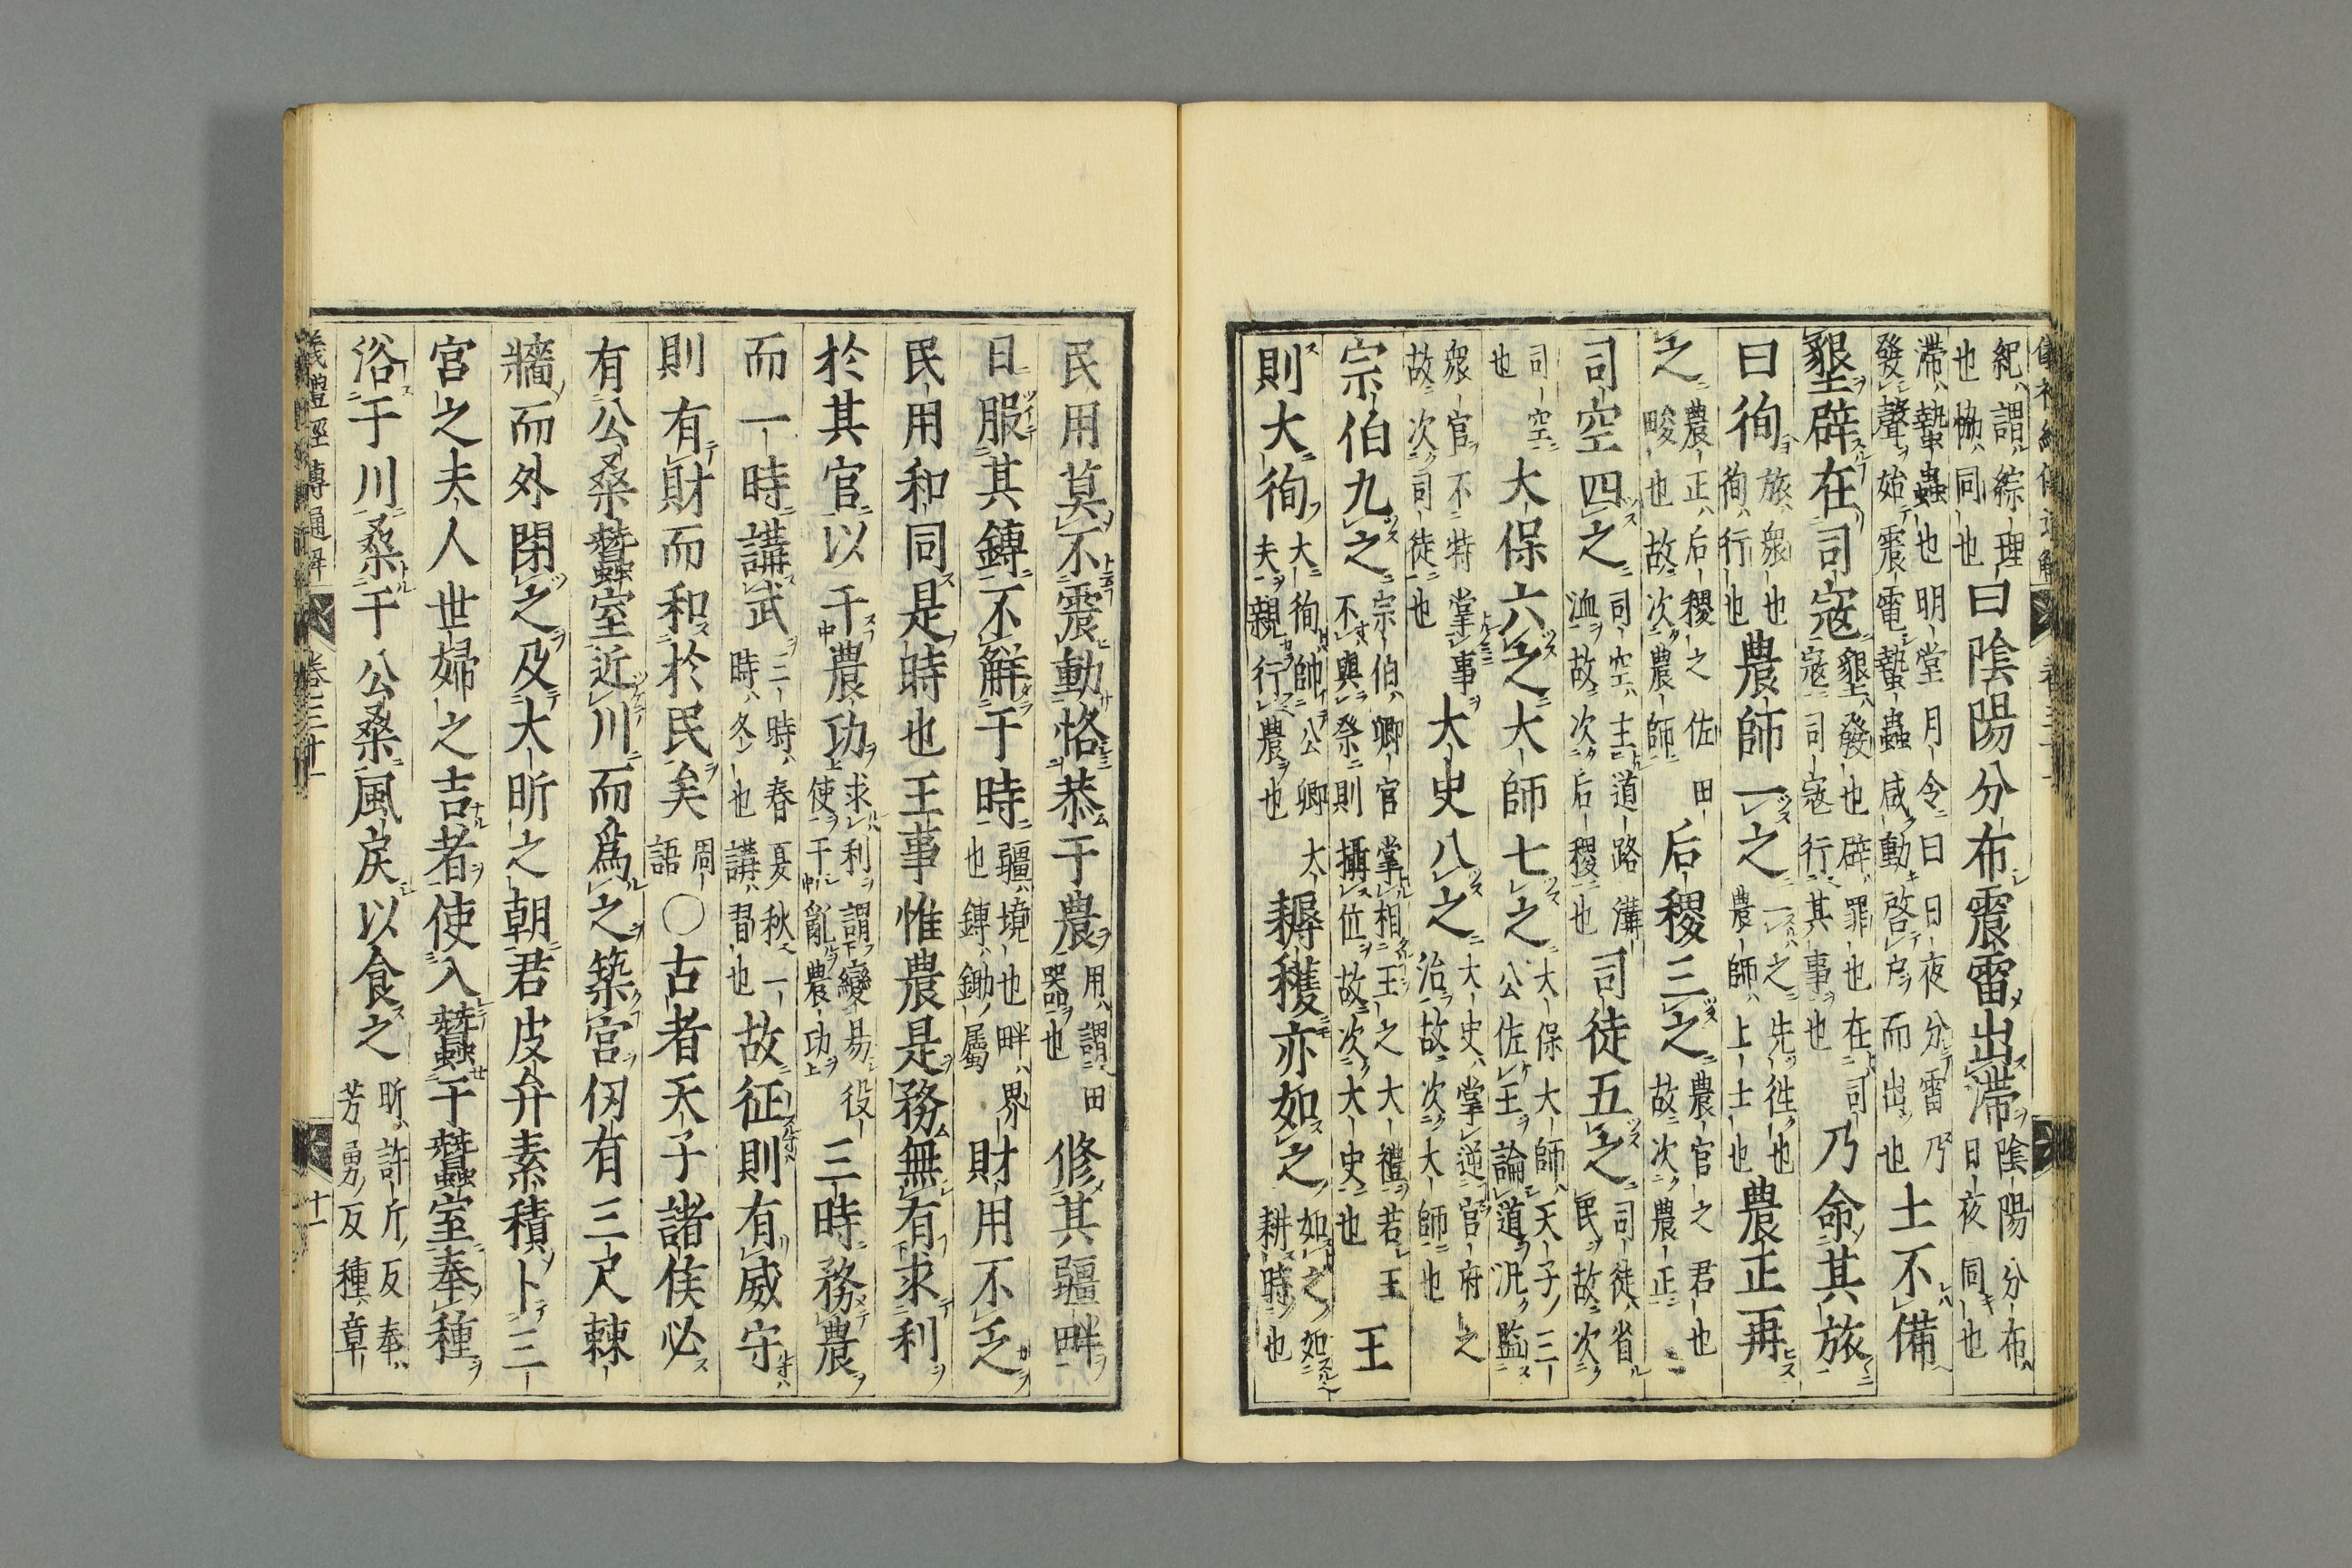 紀謂綜理也恊同也曰陰陽分布震雷出滯陰陽分布日夜同也
滯蟄蟲也明堂月令曰日夜分雷乃發聲始震電蟄蟲咸動啓戶而出也土不備
墾辟在司寇墾發也辟罪也在司寇司寇行其事也乃命其旅
曰徇旅衆也徇行也農師一之一之先徃也農師上士也農正再
之農正后稷之佐田畯也故次農師后稷三之農官之君也故次農正
司空四之司空主道路溝洫故次后稷也司徒五之司徒省民故次
司空也大保六之大師七之大保大師天子三公佐王論道况監
衆官不特掌事故次司徒也大史八之大史掌逆官府之治故次大師也
宗伯九之宗伯卿官掌相王之大禮若王不與祭則攝位故次大史也王
則大徇大徇帥公卿大夫親行農也耨穫亦如之如之如耕時也
民用莫不震動恪恭于農用謂田器也修其疆畔
日服其鎛不解于時疆境也畔界也鎛鋤屬財用不乏
民用和同是時也王事惟農是務無有求利
於其官以干農功求利謂變易役使干亂農功三時務農
而一時講武三時春夏秋一時冬也講習也故征則有威守
則有財而和於民矣周語〇古者天子諸侯必
有公桑蠶室近川而爲之築宮仞有三尺棘
牆而外閉之及大昕之朝君皮弁素積卜三
宮之夫人世婦之吉者使入蠶于蠶室奉種
浴于川桑于公桑風戾以食之昕許斤反奉芳勇反種章
儀禮經傳通解 卷三十一 十一